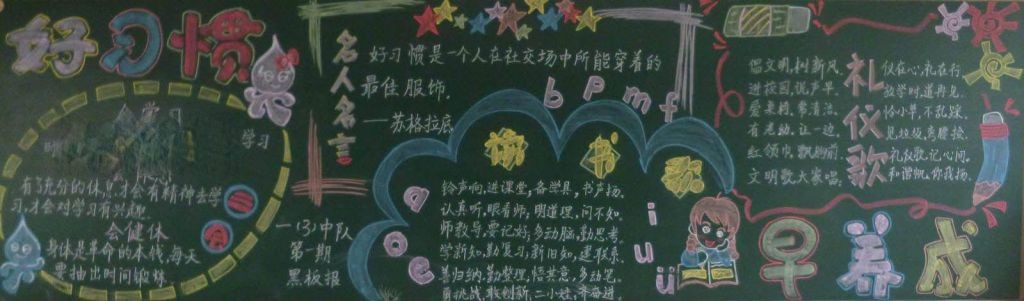 好习惯
会学习
学习
有充分的休息才会有精神去学
习,才会对学习有兴趣
会健体
身体是革命的本钱,每天
要抽出时间锻炼
名人名言
好习惯是一个人在社交场中所能穿着的
最佳服饰。
——苏格拉底
一(3)中队
第一期
黑板报
b p m f
a o e
i u ü
书歌
铃声响,进课堂,备学具,书声扬。
认真听,眼看师,明道理,问不知。
师教导,要记好,多动脑,勤思考。
学新知,勤复习,新旧知,建联系。
善归纳,勤整理,悟其意,多动笔。
勇挑战,敢创新,二小娃,齐奋进。
礼仪歌
倡文明,树新风,仪在心,礼在行
进校园,说声早,放学时,道再见。
爱素园,常清洁,恰小草,不乱踩。
有走动,让一边,见垃圾,弯腰捡。
红领巾,飘胸前,礼仪歌,记心间。
文明歌大家唱,和谐帆,你我扬。
早养成